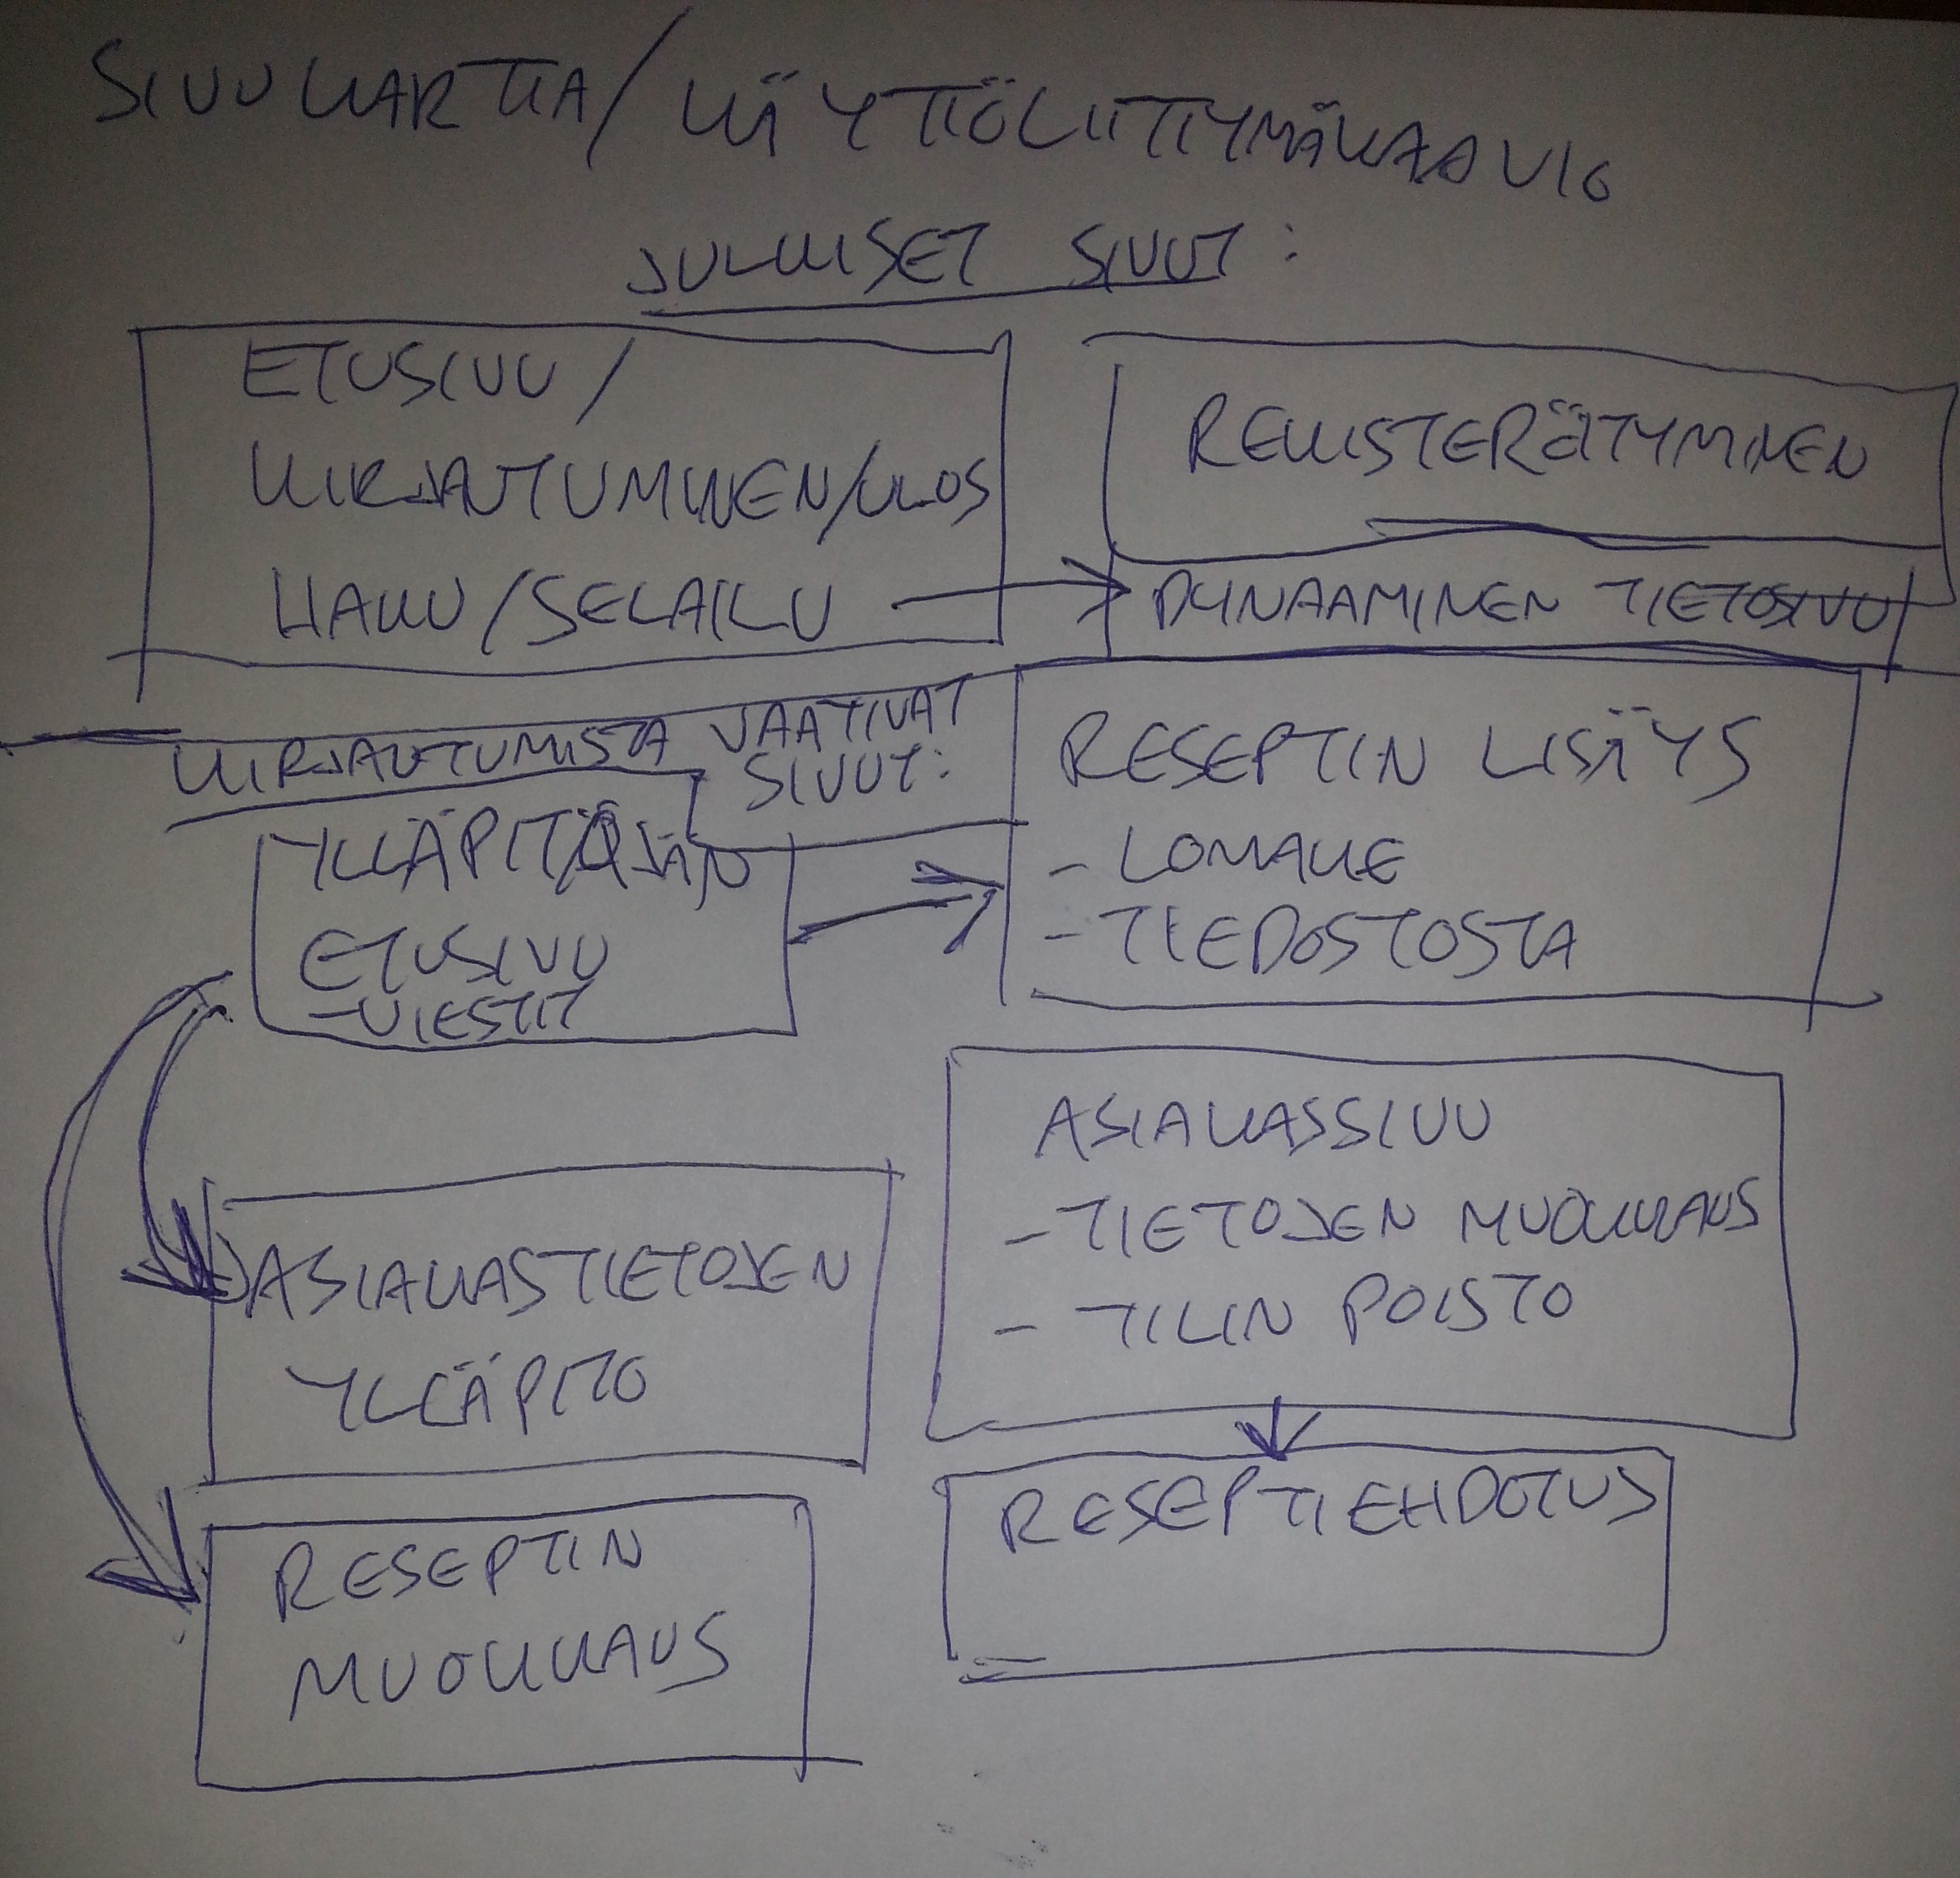 SIVUKARTTA/KÄYTTÖLIITTYMÄKAAVIO
JULKISET SIVUT:
ETUSIVU/
KIRJAUTUMINEN/ULOS
HAKU/SELAILU
REKISTERÖITYMINEN
DYNAAMINEN TIETOSIVU
KIRJAUTUMISTA VAATIVAT
SIVUT:
YLLÄPITÄJÄN
ETUSIVU
-VIESTIT
RESEPTIN LISÄYS
- LOMAKE
- TIEDOSTOSTA
ASIAKASTIETOJEN
YLLÄPITO
RESEPTIN
MUOKKAUS
ASIAKASSIVU
- TIETOJEN MUOKKAUS
- TILIN POISTO
RESEPTIEHDOTUS